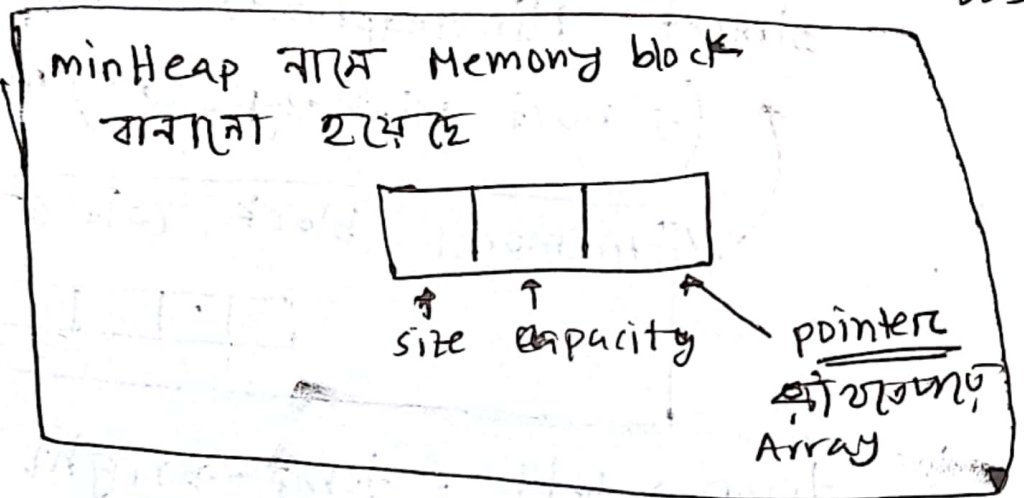 minHeap নামে Memory block
বানানো হয়েছে
size capacity
pointer
Array